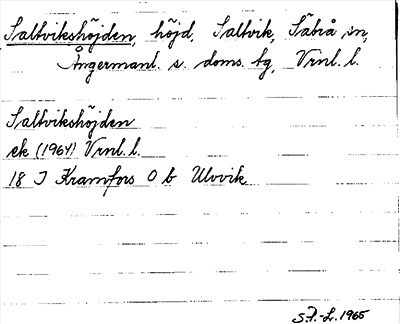 Saltvikshöjden, höjd, Saltvik, Säbrå sn,
Ångermanl. s. doms. tg, Vrnl. l.
Saltvikshöjden
ek (1964) Vrnl. l.
18 J Kramfors O b Ulvvik
S.F.-L. 1965